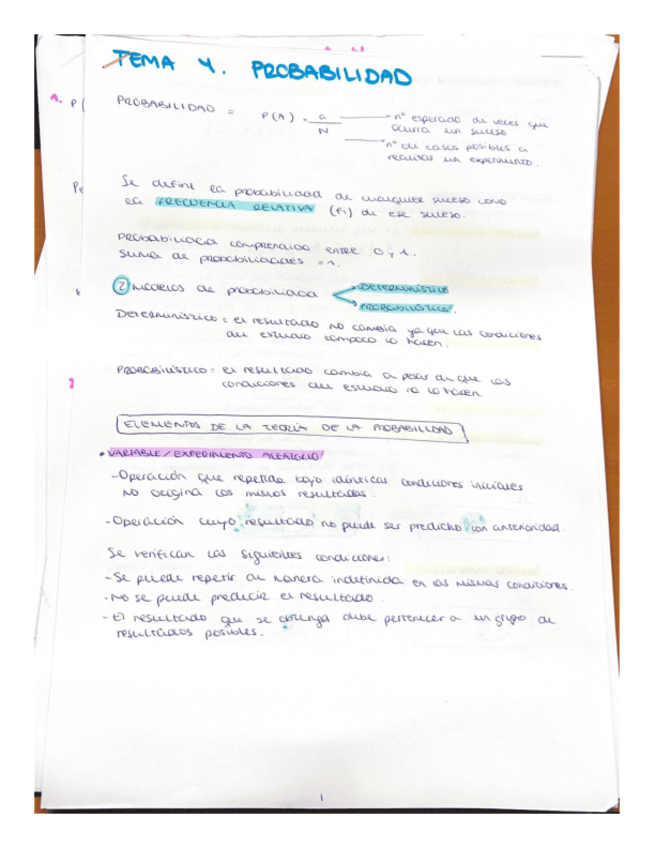 TEMA 4. PROBABILIDAD
1. P(
PROBABILIDAD = P(A) = a / N
nº esperado de veces que
ocurra un suceso
nº de casos posibles a
realizar un experimento.
Se define la probabilidad de cualquier suceso como
la FRECUENCIA RELATIVA (fi) de ese suceso.
Probabilidad comprendida entre 0 y 1.
Suma de probabilidades = 1.
2 modelos de probabilidad
DETERMINÍSTICO
PROBABILÍSTICO.
Determinístico = el resultado no cambia ya que las condiciones
del estudio tampoco lo hacen.
PROBABILÍSTICO = el resultado cambia a pesar de que las
condiciones del estudio no lo hacen
ELEMENTOS DE LA TEORÍA DE LA PROBABILIDAD
• VARIABLE/EXPERIMENTO ALEATORIO
- Operación que repetida bajo idénticas condiciones iniciales
no origina los mismos resultados.
- Operación cuyo resultado no puede ser predicho con anterioridad.
Se verifican las siguientes condiciones:
- Se puede repetir de manera indefinida en las mismas condiciones.
- No se puede predecir el resultado.
- El resultado que se obtenga debe pertenecer a un grupo de
resultados posibles.
1